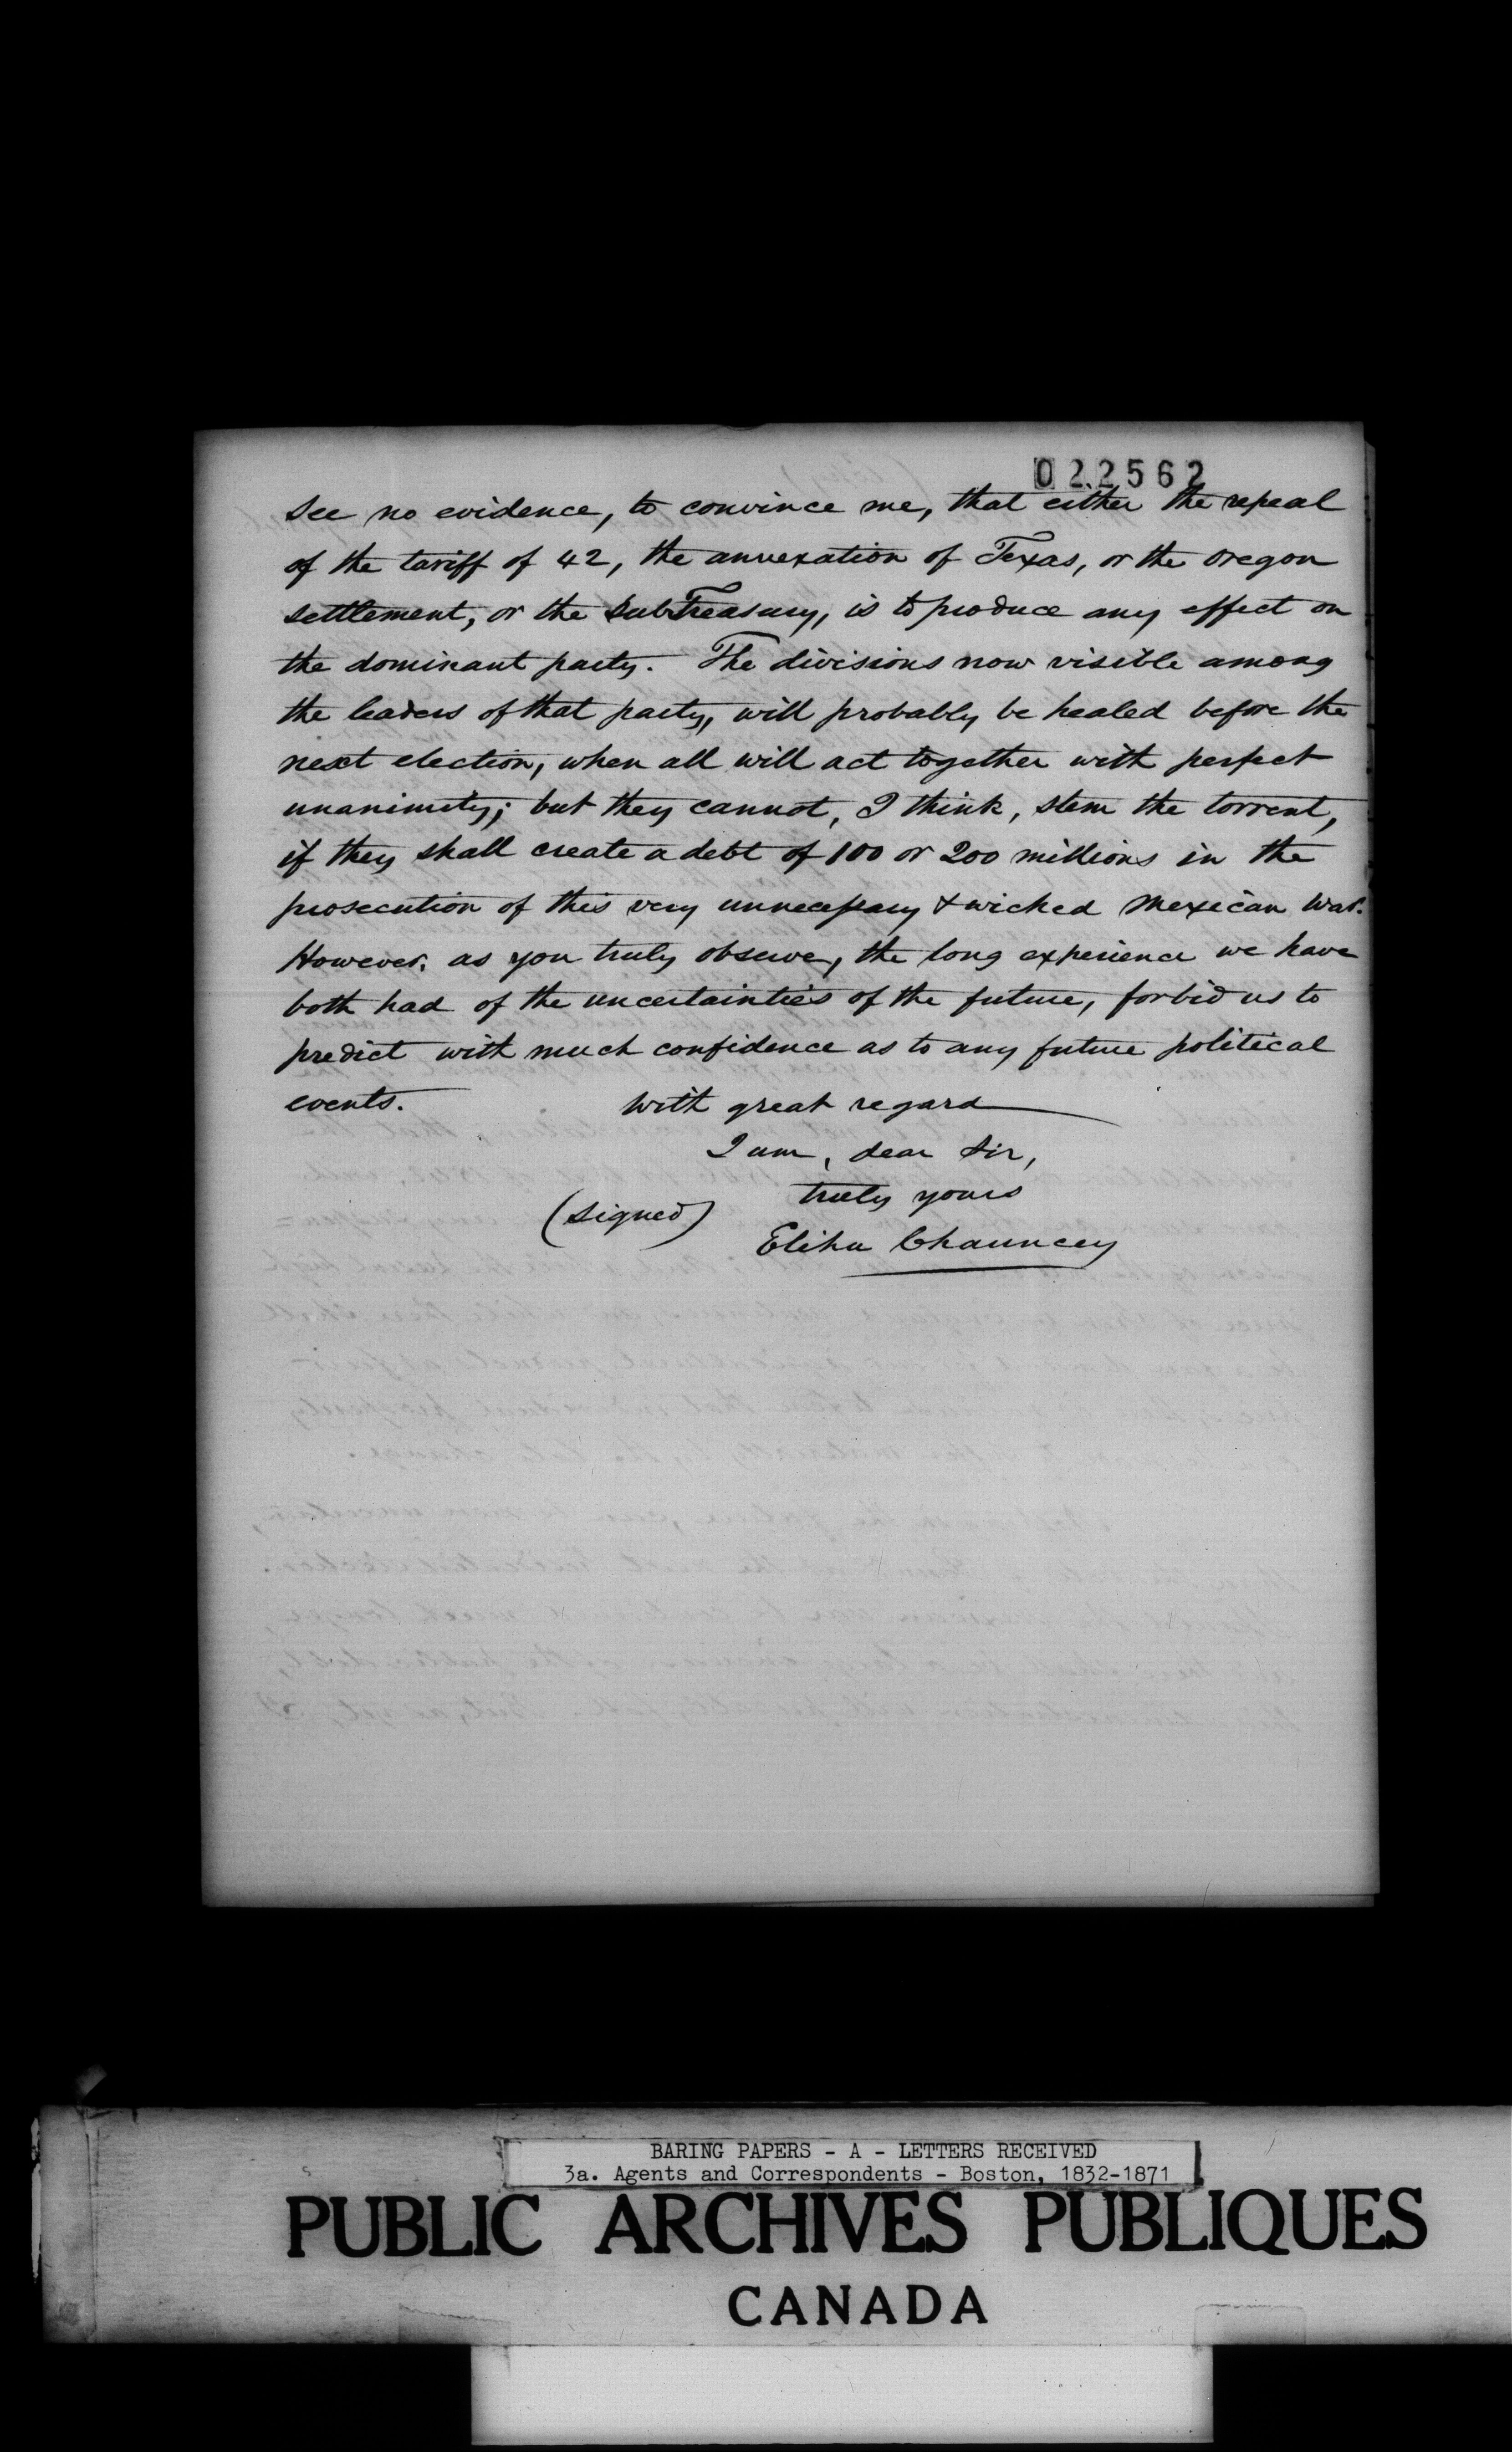 022562
see no evidence, to convince me, that either the repeal
of the tariff of 42, the annexation of Texas, or the Oregon
settlement, or the SubTreasury, is to produce any effect on
the dominant party. The divisions now visible among
the leaders of that party, will probably be healed before the
next election, when all will act together with perfect
unanimity; but they cannot, I think, stem the torrent,
if they shall create a debt of 100 or 200 millions in the
prosecution of this very unnecessary & wicked Mexican War.
However, as you truly observe, the long experience we have
both had of the uncertainties of the future, forbid us to
predict with much confidence as to any future political
events. With great regard
I am, dear Sir,
truly yours
(signed)
Elihu Chauncey
BARING PAPERS - A - LETTERS RECEIVED
3a. Agents and Correspondents - Boston, 1832-1871
PUBLIC ARCHIVES PUBLIQUES
CANADA